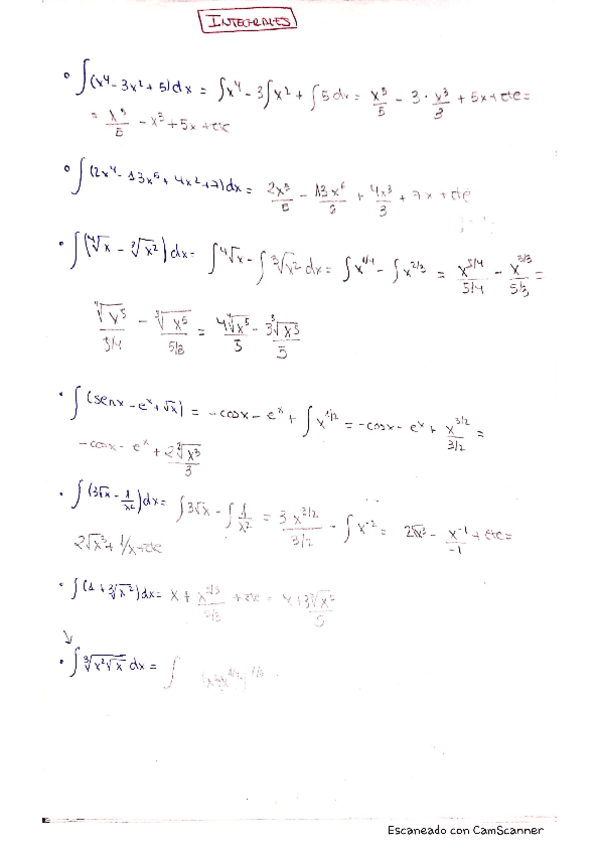 INTEGRALES
∫(x⁴ - 3x² + 5)dx = ∫x⁴ - 3∫x² + ∫5dx = x⁵/5 - 3 · x³/3 + 5x + cte =
= x⁵/5 - x³ + 5x + cte
∫(2x⁴ - 13x⁵ + 4x² + 7)dx = 2x⁵/5 - 13x⁶/6 + 4x³/3 + 7x + cte
∫(⁴√x - ³√x²)dx = ∫⁴√x - ∫³√x² dx = ∫x^1/4 - ∫x^2/3 = x^5/4 / 5/4 - x^5/3 / 5/3 =
- = -
∫(senx - eˣ + √x) = -cosx - eˣ + ∫x^1/2 = -cosx - eˣ + x^3/2 / 3/2 =
-cosx - eˣ + 2√x³/3
∫(3√x - 1/x²)dx = ∫3√x - ∫1/x² = 3x^3/2 / 3/2 - ∫x⁻² = 2√x³ - x⁻¹/-1 + cte =
2√x³ + 1/x + cte
∫(1 + ³√x²)dx = x + + cte =
∫³√x²√x dx = ∫
Escaneado con CamScanner